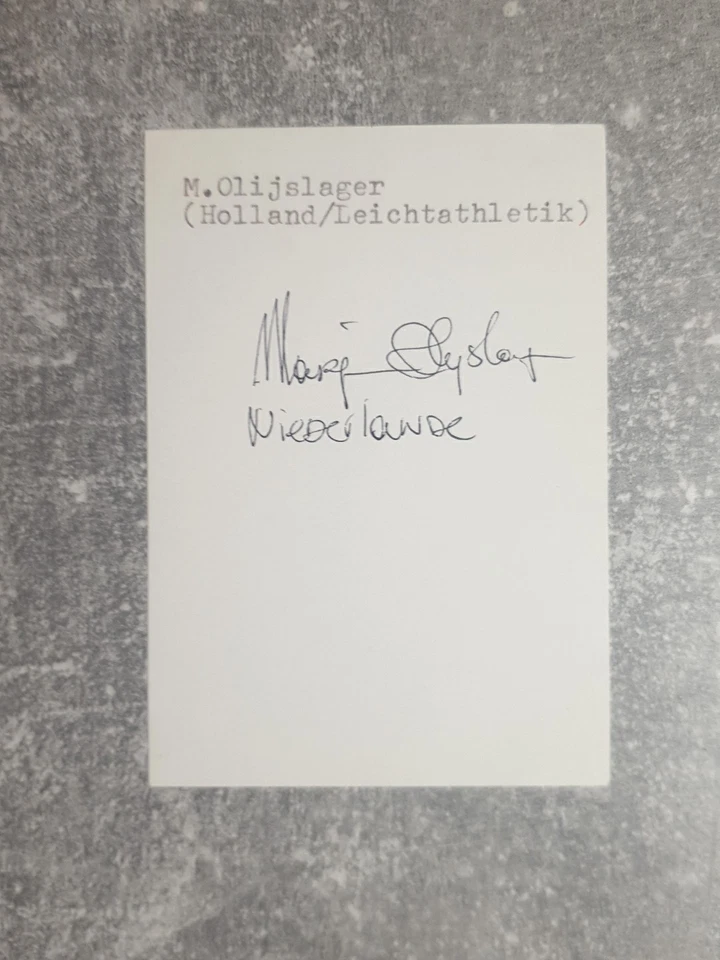 M.Olijslager
(Holland/Leichtathletik)
Marjan Olyslager
Niederlande